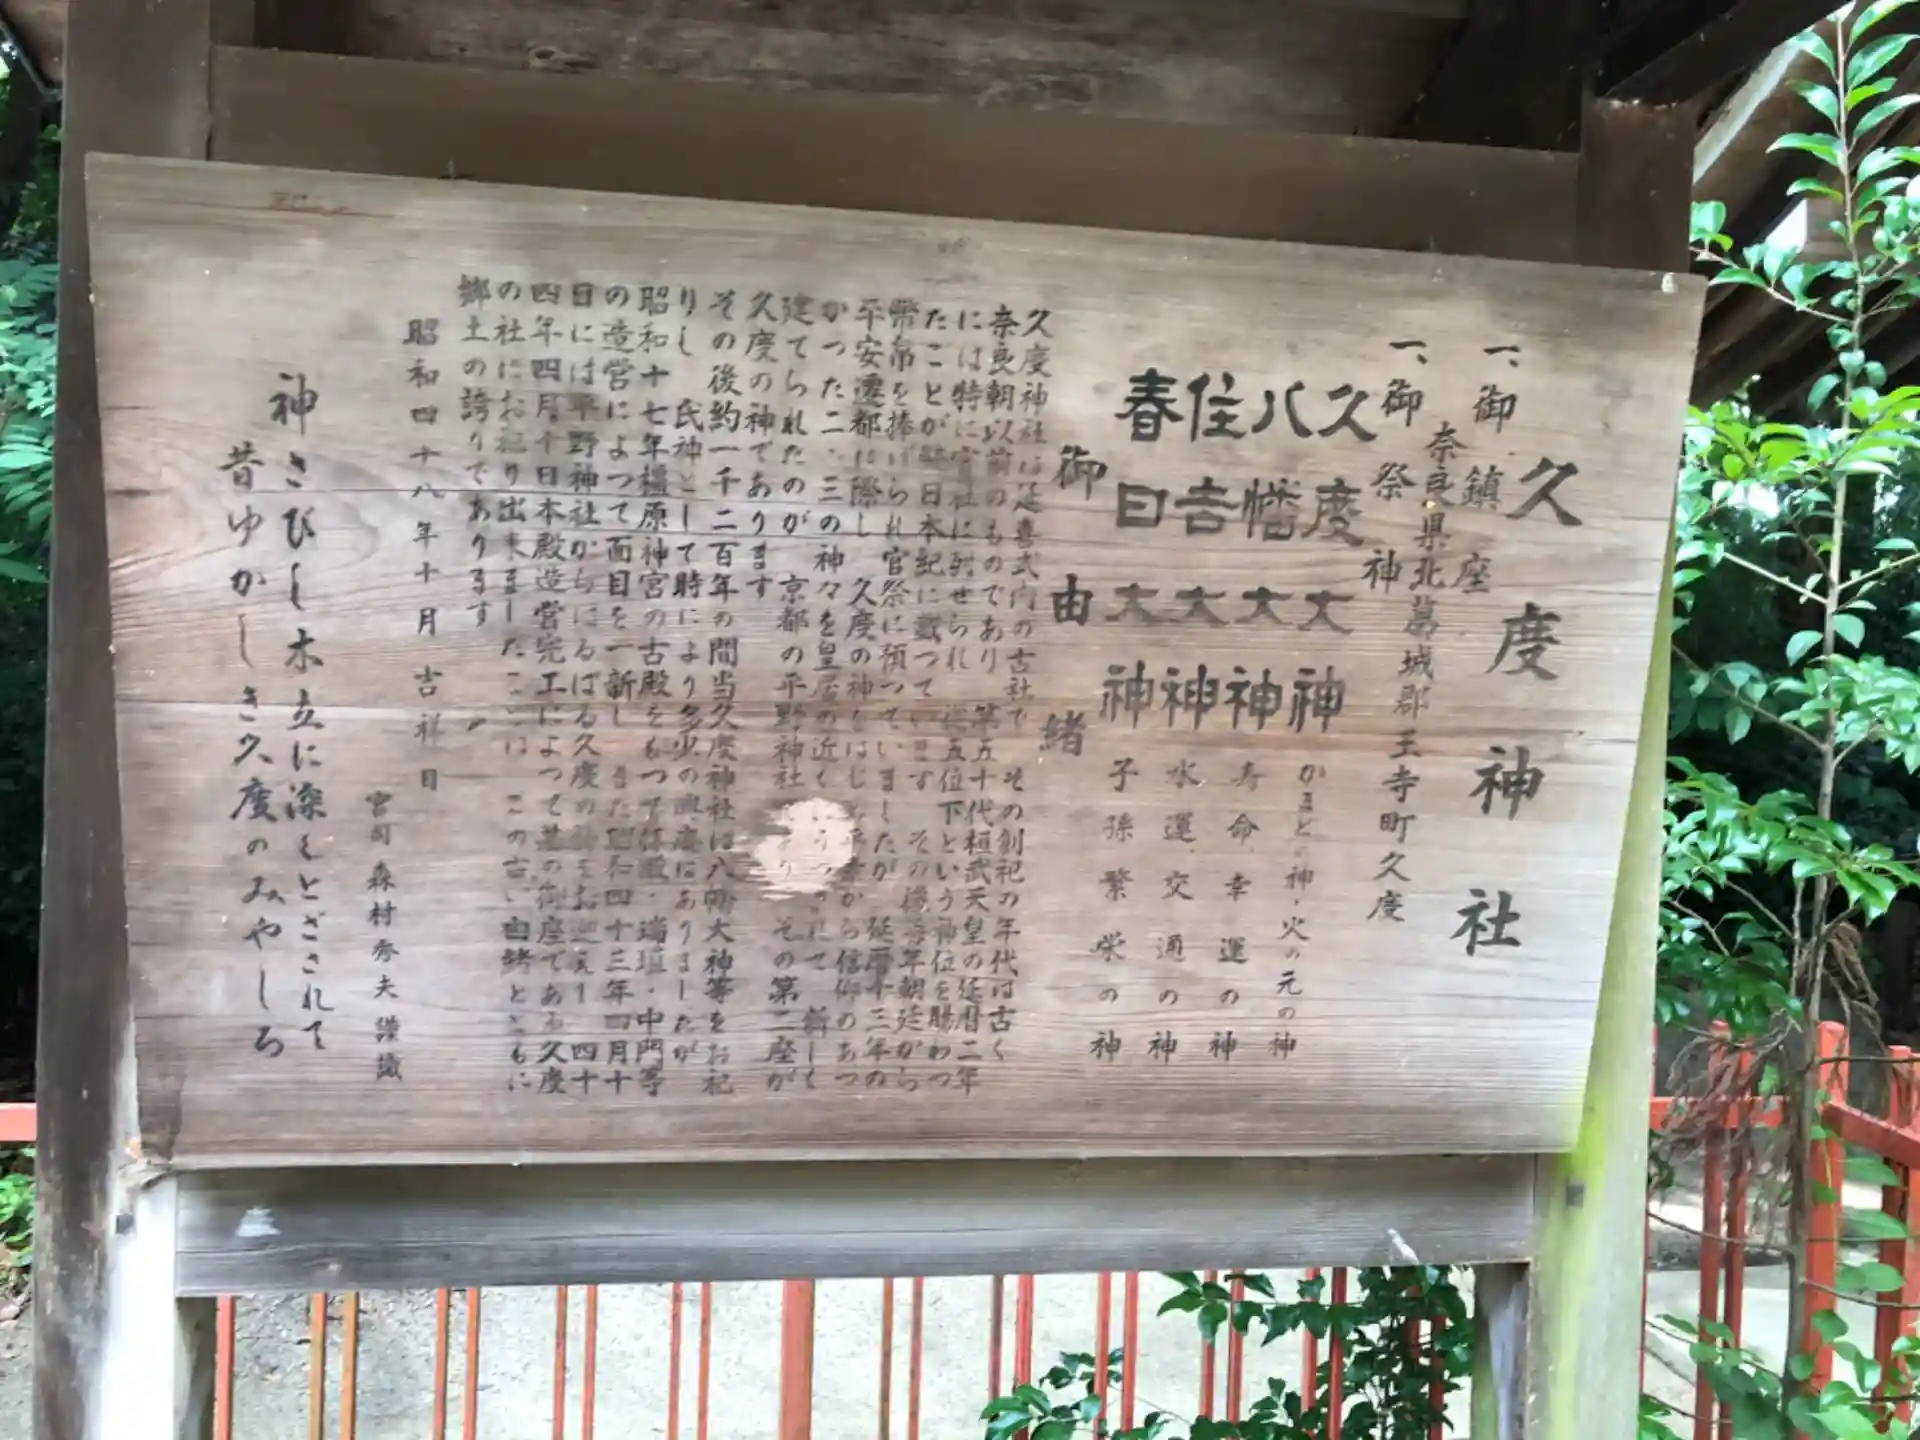 久度神社
一、御鎮座
奈良県北葛城郡王寺町久度
一、御祭神
久度大神 かまどの神・火の元の神
八幡大神 寿命、幸運の神
住吉大神 水運、交通の神
春日大神 子孫繁栄の神
御由緒
久度神社は延喜式内の古社で その創祀の年代は古く
奈良朝以前のものであり 第五十代桓武天皇の延暦二年
には特に官社に列せられ 従五位下という神位を賜わつ
たことが続日本紀に載つています その後毎年朝廷から
幣帛を捧げられ官祭に預つていましたが 延暦十三年の
平安遷都に際し 久度の神をはじめ平素から信仰のあつ
かつた二、三の神々を皇居の近く うつされて 新しく
建てられたのが 京都の平野神社 その第二座が
久度の神であります
その後約一千二百年の間当久度神社は八幡大神等をお祀
りし 氏神として時により多少の興廃にありましたが
昭和十七年橿原神宮の古殿をもつて拝殿・瑞垣・中門等
の造営によつて面目を一新し また昭和四十三年四月十
日には平野神社からはるばる久度の神をお迎えし 四十
四年四月十日本殿造営完工によつて基の御座である久度
の社にお祀り出来ましたことは この古い由緒とともに
郷土の誇りであります
昭和四十八年十月吉祥日
宮司 森村秀夫 謹識
神さびし木立に深くとざされて
昔ゆかしき久度のみやしろ